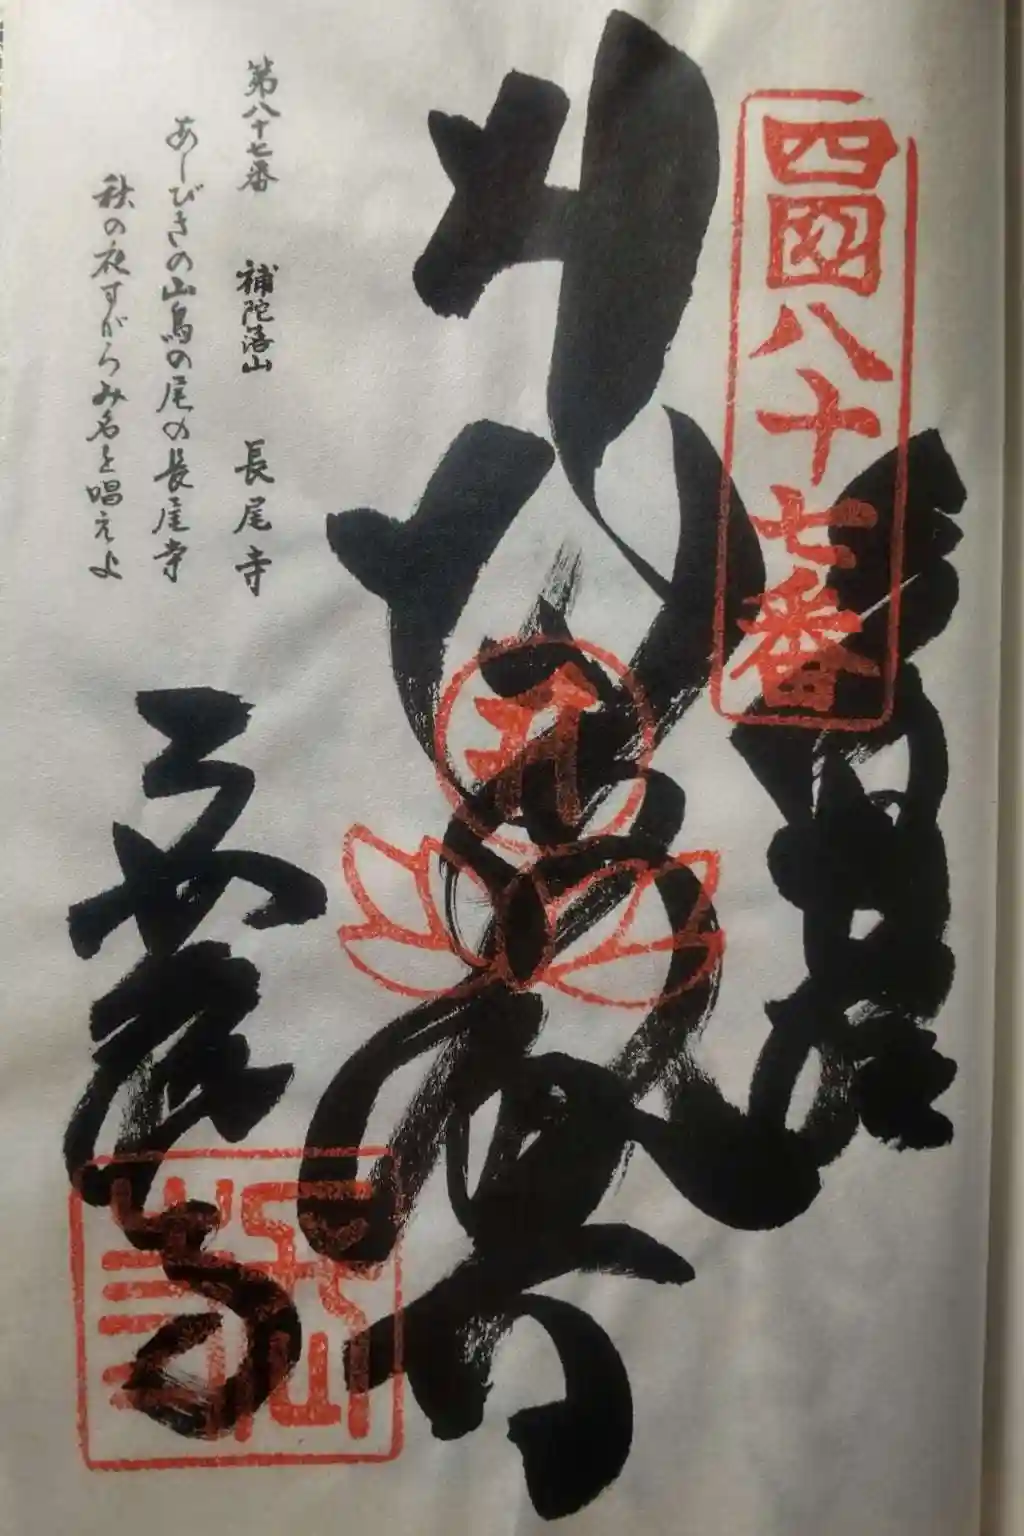 四國八十七番
奉拝
長尾寺
第八十七番 補陀落山 長尾寺
あしびきの山鳥の尾の長尾寺
秋の夜すがらみ名を唱えよ